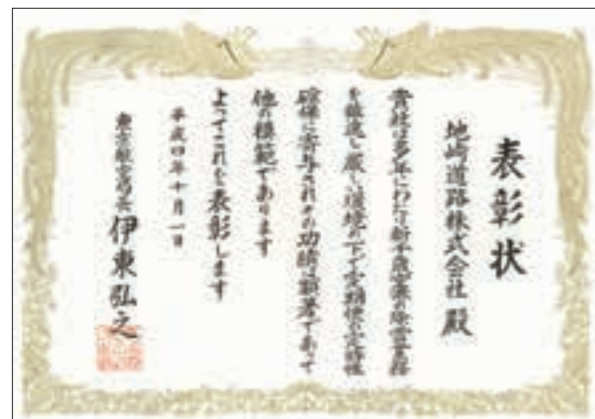 表彰状
地崎道路株式会社 殿
貴社は多年にわたり新千歳空港の除雪業務
を推進し厳しい環境の下で定期便の定時性
確保に寄与されその功績は顕著であって
他の模範であります
よってこれを表彰します
平成四年十月一日
東京航空局長 伊東弘之